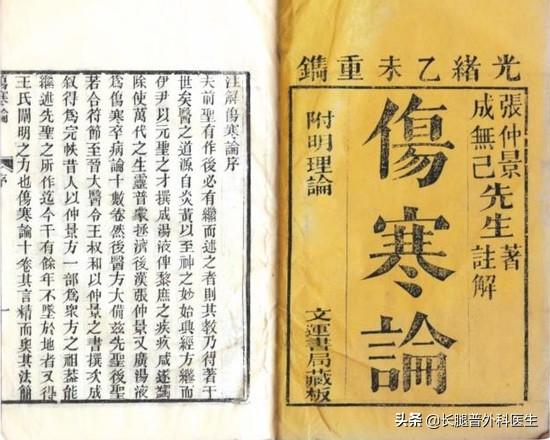 光緒乙未重鐫
張仲景
成無己
先生
著
註解
傷寒論
附明理論
文運書局藏板
注解傷寒論序
夫前聖有作後必有繼而述之者則其教乃得著于
世矣醫之道源自炎黃以至神之妙始興經方繼而
伊尹以元聖之才撰成湯液俾黎庶之疾疚咸遂蠲
除使萬代之生靈普蒙拯濟後漢張仲景又廣湯液
爲傷寒卒病論十數卷然後醫方大備茲先聖後聖
若合符節至晉太醫令王叔和以仲景之書撰次成
叙得爲完帙昔人以仲景方一部爲衆方之祖蓋能
繼述先聖之所作迄今千有餘年不墜於地者又得
王氏闡明之力也傷寒論十卷其言精而奧其法簡
傷寒論 序 一
头条 @长腿普外科医生